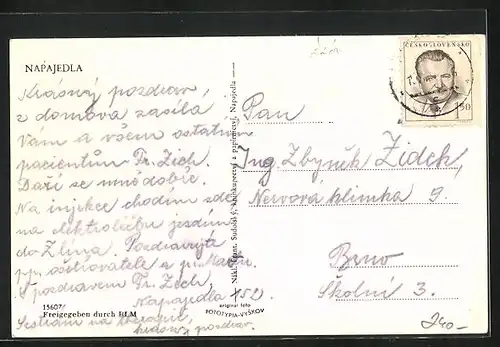 NAPAJEDLA
Krásný pozdrav,
z domova zasílá
Vám a všem ostatním
pacientům Fr. Zich.
Daří se mně dobře.
Na injekce chodím zde
na elektroléčbu jezdím
do Zlína. Pozdravujte
pp. ošetřovatele a
S pozdravem Fr. Zich,
Napajedla
Sestrám na therapii,
krásný pozdrav.
15607
Freigegeben durch RLM
Nákl. Frant. Sudolský, knihkupectví a papírnictví, Napajedla
original foto
FOTOTYPIA-VYŠKOV
ČESKOSLOVENSKO
1.50
Pan
Ing. Zbyněk Zídek,
Nervová klinika 9.
Brno
Školní 3.